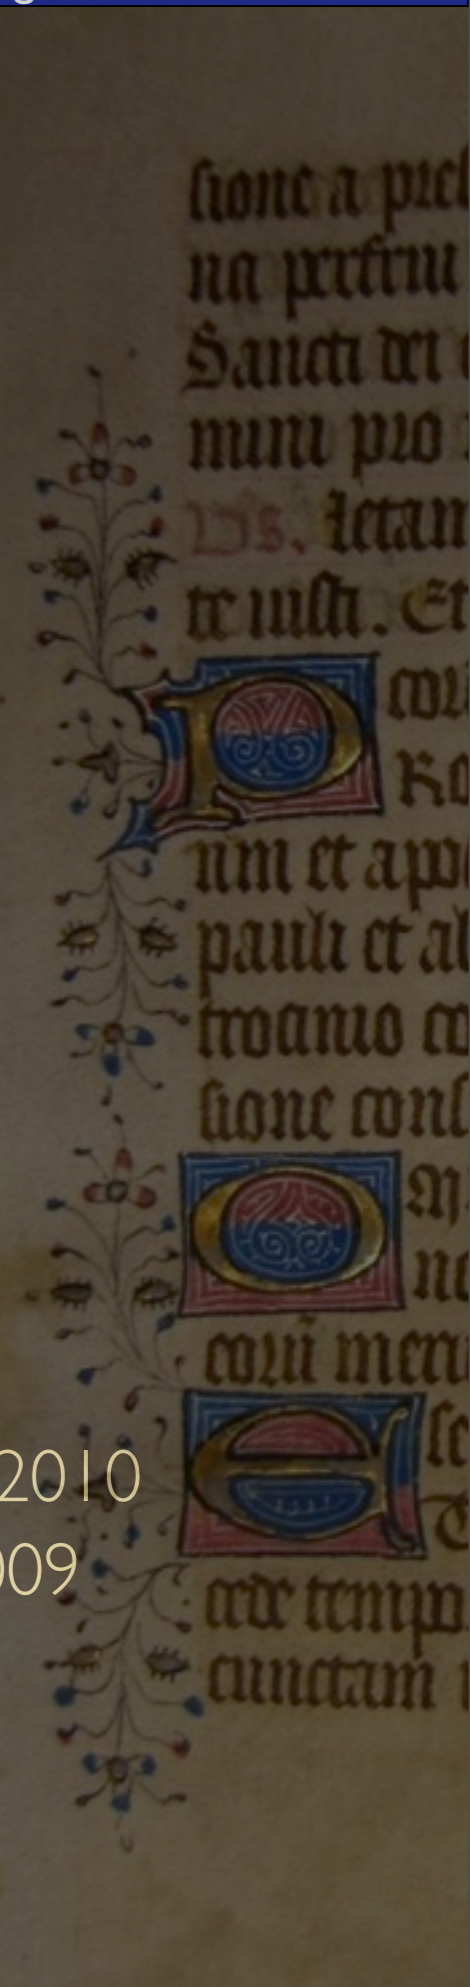 sione a pre
na perfrui
Sancti dei
mini pro
Vs. letam
te iusti. Et
P cor
Ro
um et apo
pauli et al
trocinio co
sione cons
O M
ne
corū meri
E se
T
2010
cede tempo
009
cunctam